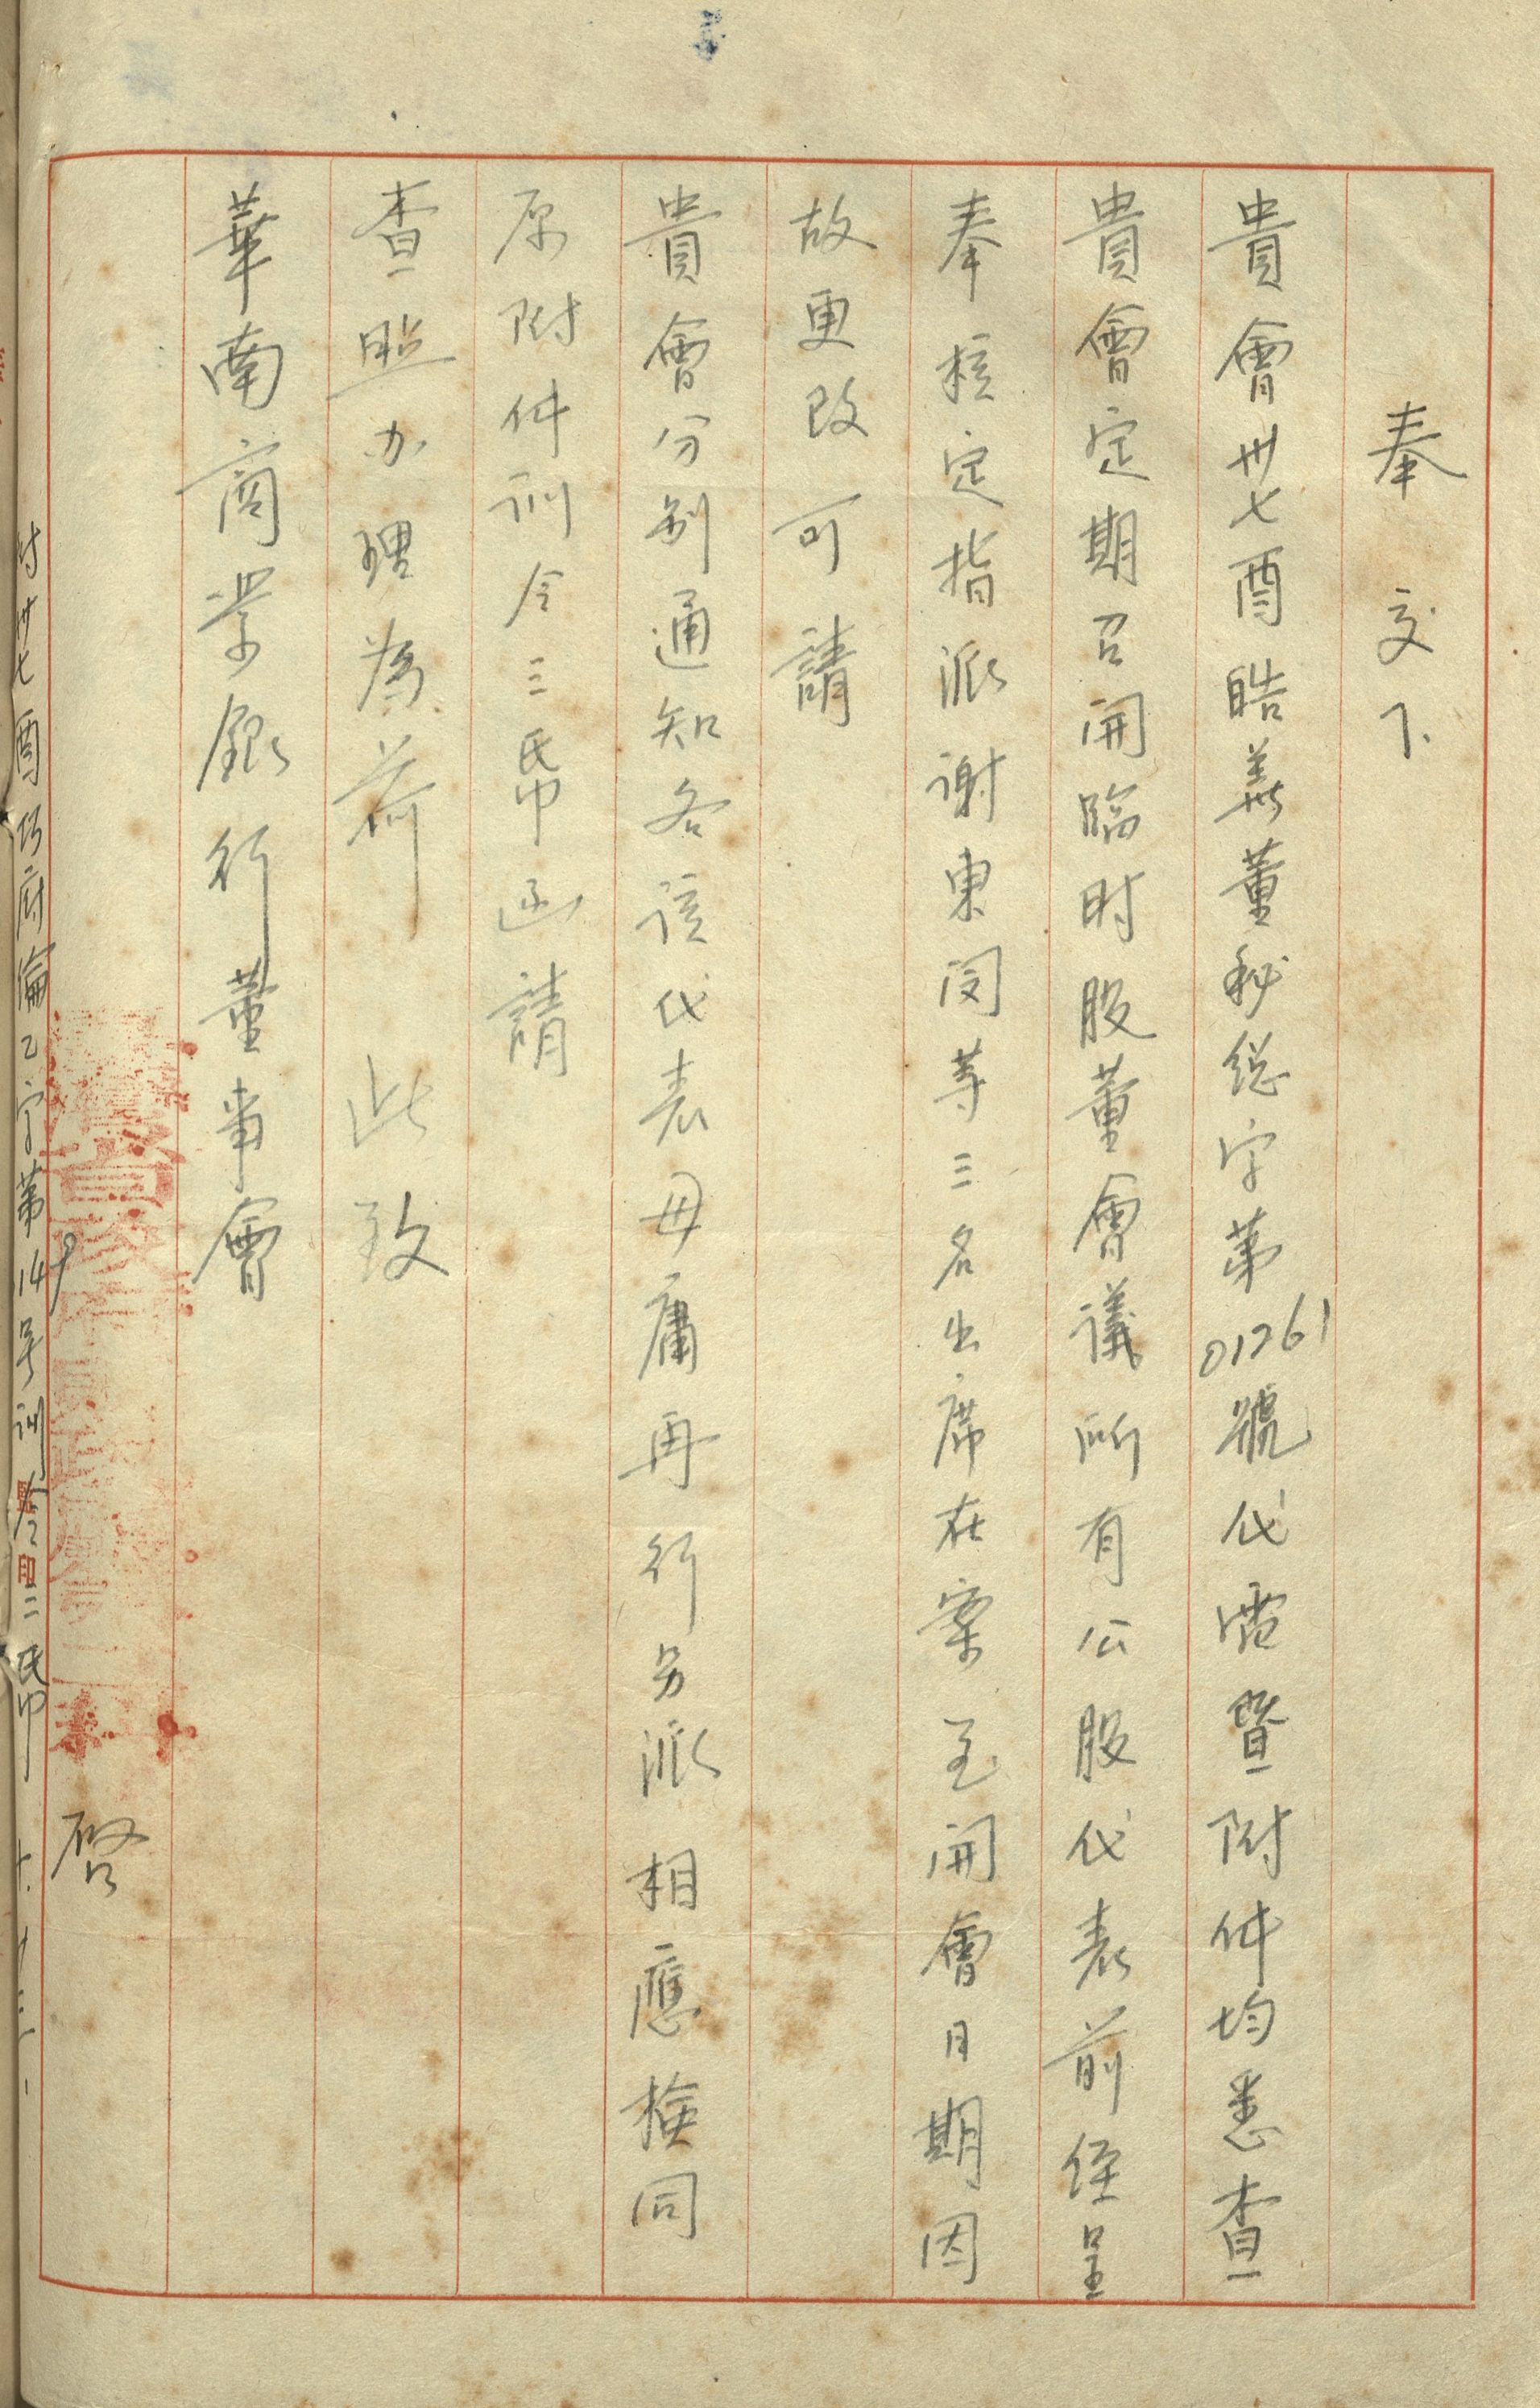 奉 交下
貴會卅七酉皓義董秘總字第01761號代電暨附件均悉查
貴會定期召開臨时股董會議所有公股代表前經呈
奉核定指派謝東閔等三名出席在案至開會日期因
故更改可請
貴會分别通知各該代表毋庸再行另派相應檢同
原附件訓令三帋函請
查照办理為荷 此致
華南商業銀行董事會
啓
附卅七酉巧府綸乙字第149号訓令三帋
監印